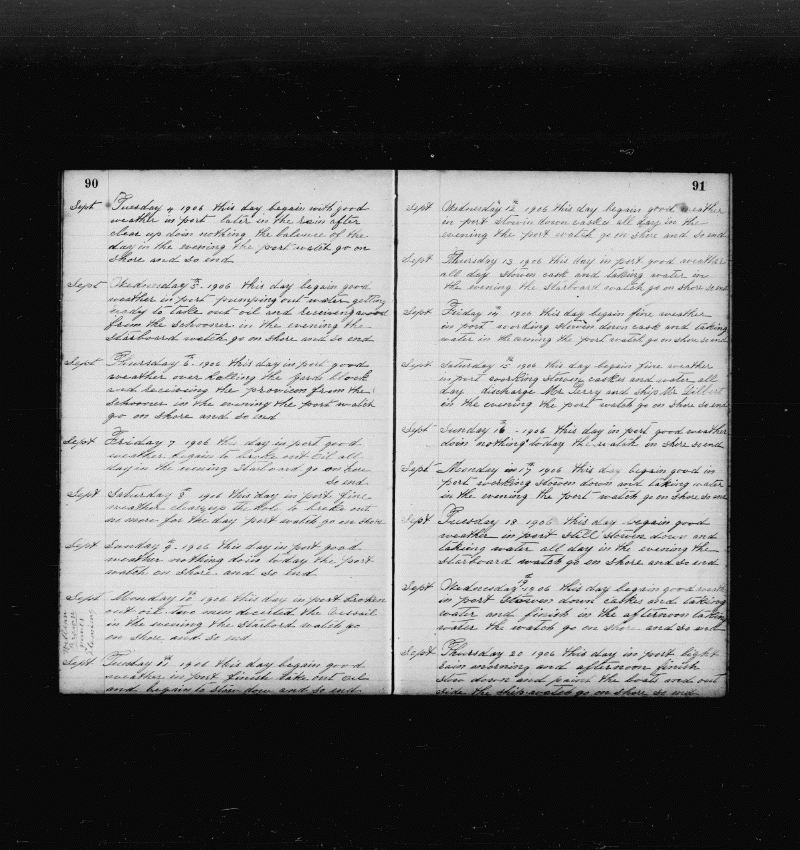 90
Sept Tuesday 4 1906 this day began with good
weather in port later in the rain after
clear up doin nothing the balance of the
day in the evening the port watch go on
shore and so end
Sept Wednesday 5 1906 this day begain good
weather in port pumping out water getting
ready to take out oil and receiving wood
from the schooner in the evening the
starboard watch go on shore and so end
Sept Thursday 6 1906 this day in port good
weather over halling the yard block
and receiving the provison from the
schooner in the evening the port watch
go on shore and so end
Sept Friday 7 1906 the day in port good
weather begain to broke out oil all
day in the evening Starboard go on shore
so end
Sept Saturday 8 1906 this day in port fine
weather the hole to broke out
no more for the day port watch go on shore
Sept Sunday 9 1906 this day in port good
weather nothing doin today the port
watch on shore and so end
Sept Monday 10 1906 this day in port broken
out oil two men decirted the vessail
in the evening the Starbord watch go
on shore and so end
Sept Tuesday 11 1906 this day begain good
weather in port finish take out oil
and begain to stow down and so end
91
Sept Wednesday 12 1906 this day begain good weather
in port stowin down caskes all day in the
evening the port watch go on shore and so end
Sept Thursday 13 1906 this day in port good weather
all day stowen cask and taking water in
the evening the Starboard watch go on shore so end
Sept Friday 14 1906 this day begain fine weather
in port working stowen down cask and taking
water in the evening the port watch go on shore so end
Sept Saturday 15 1906 this day begain fine weather
in port working stowen caskes and water all
day discharge Mr Terry and ship Mr Gilbert
in the evening the port watch go on shore so end
Sept Sunday 16 1906 this day in port good weather
doin nothing to day the watch on shore so end
Sept Monday in 17 1906 this day begain good in
port working stowen down and taking water
in the evening the port watch go on shore so end
Sept Tuesday 18 1906 this day begain good
weather in port still stowen down and
takiing water all day in the evening the
Starboard watch go on shore and so end
Sept Wednesday 19 1906 this day begain good weath
in port Stowen down caskes and taking
water and finish in the afternoon taking
water the watch go on shore and so end
Sept Thursday 20 1906 this day in port light
rain morning and afternoon finish
stow down and paint the boats and out
side the ship watch go on shore so end